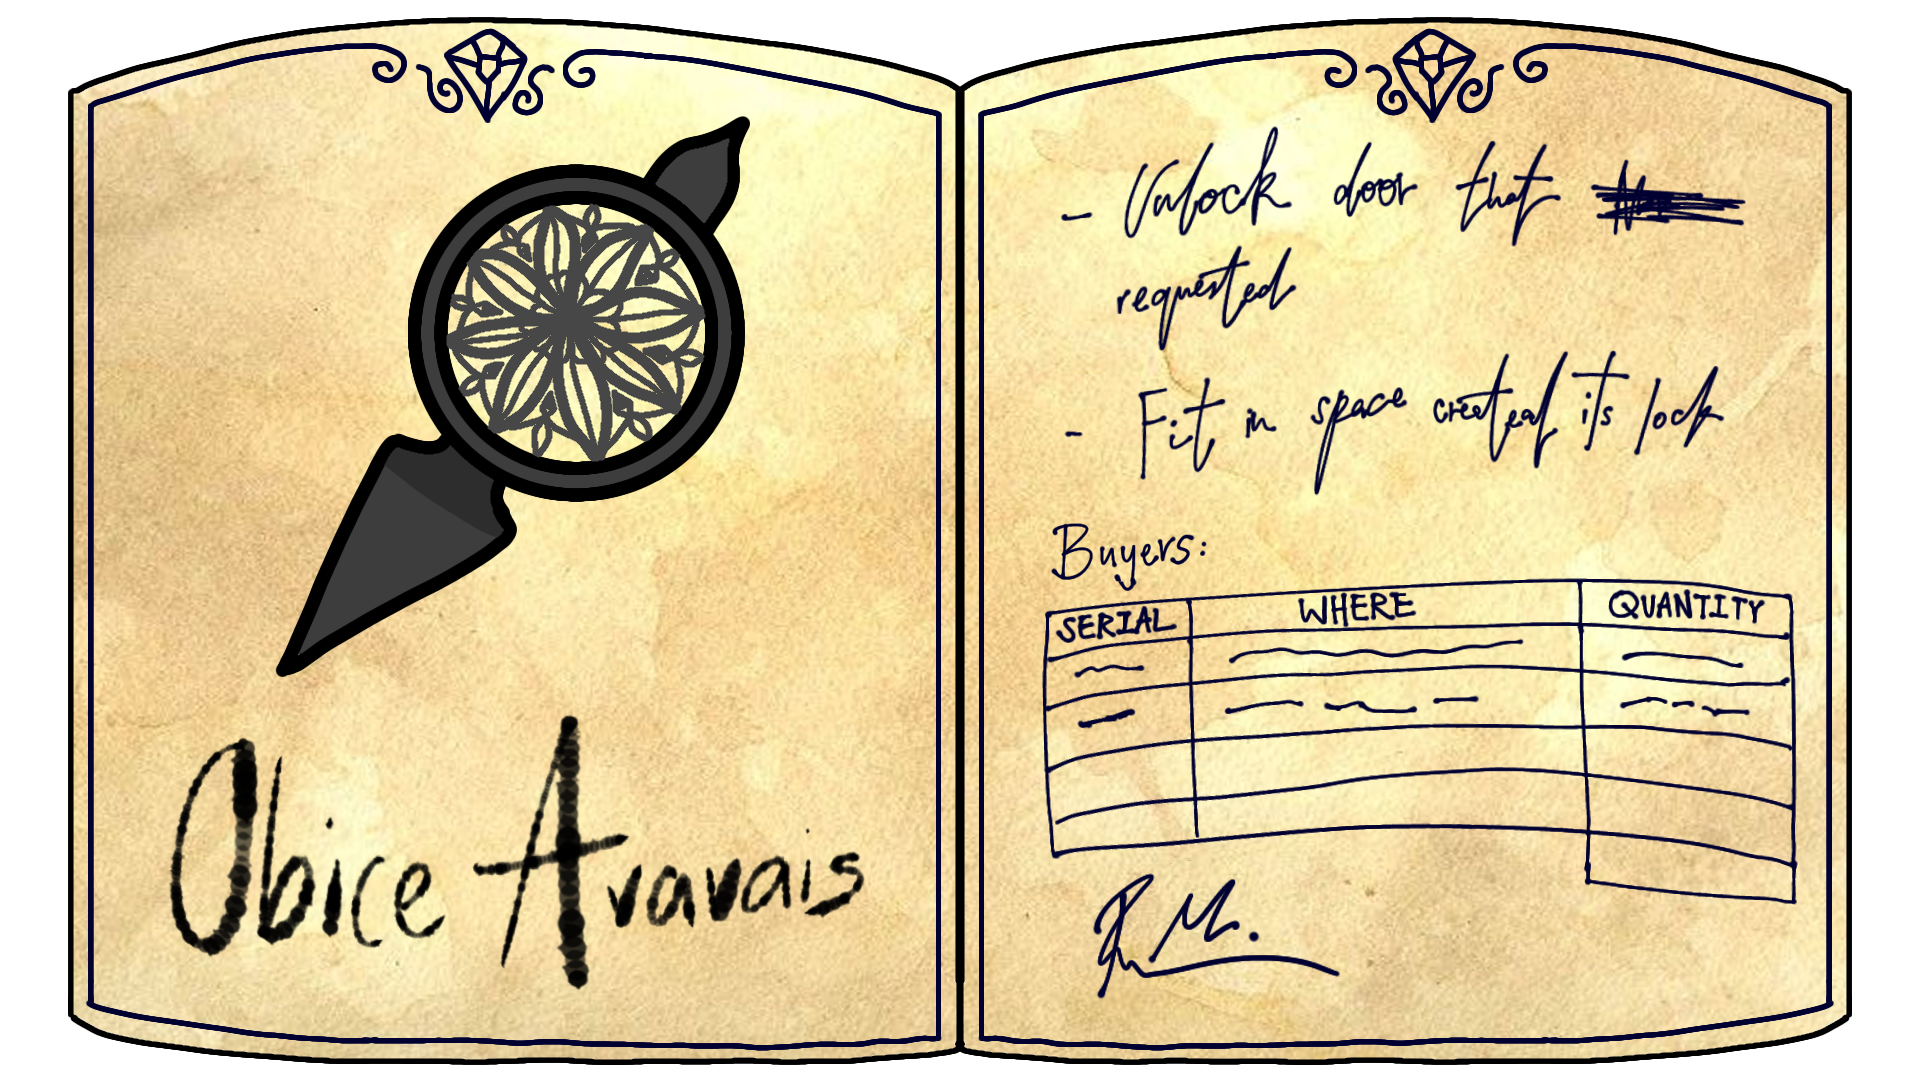 Obice Aravais
- Unlock door that
requested
- Fit in space created its lock
Buyers:
SERIAL WHERE QUANTITY
R M.